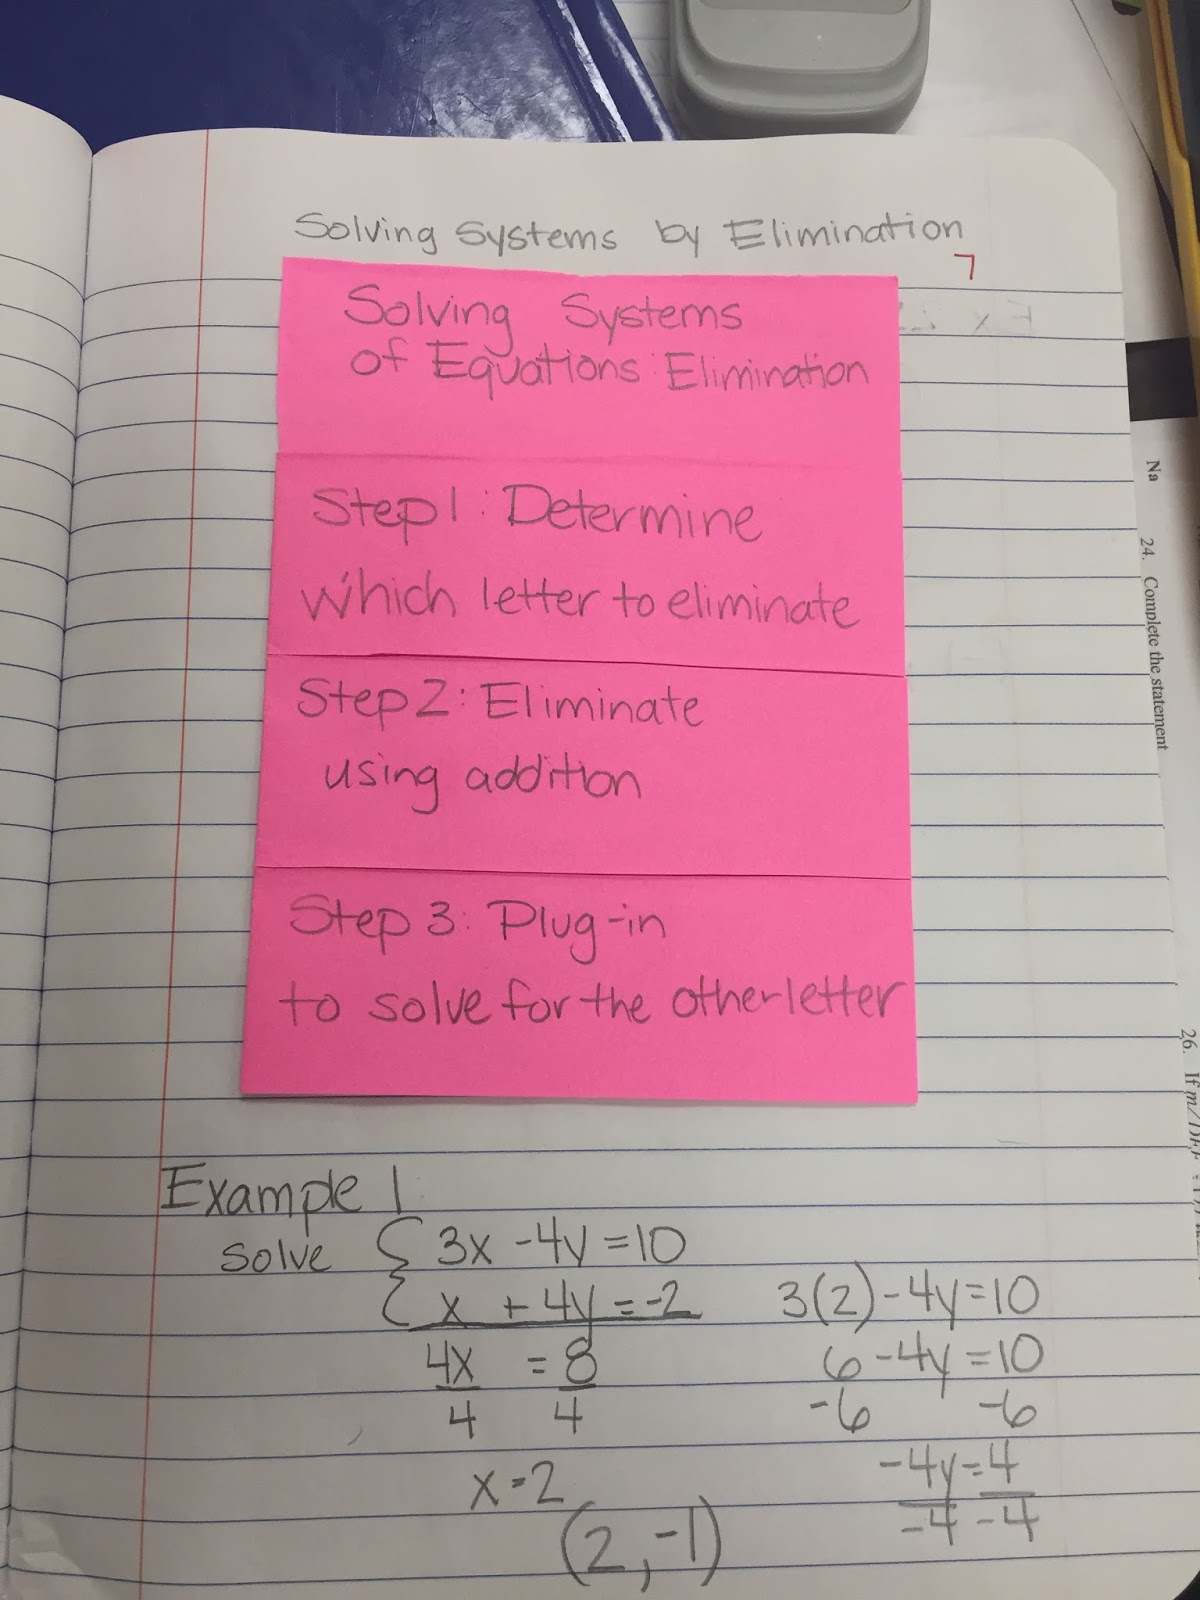 Solving Systems by Elimination
7
Solving Systems
of Equations: Elimination
Step 1: Determine
which letter to eliminate
Step 2: Eliminate
using addition
Step 3: Plug-in
to solve for the other letter
Example 1
solve { 3x - 4y = 10
x + 4y = -2
4x = 8
4 4
x = 2
(2, -1)
3(2) - 4y = 10
6 - 4y = 10
-6 -6
-4y = 4
-4 -4
Na
24. Complete the statement
26. If m∠DEF